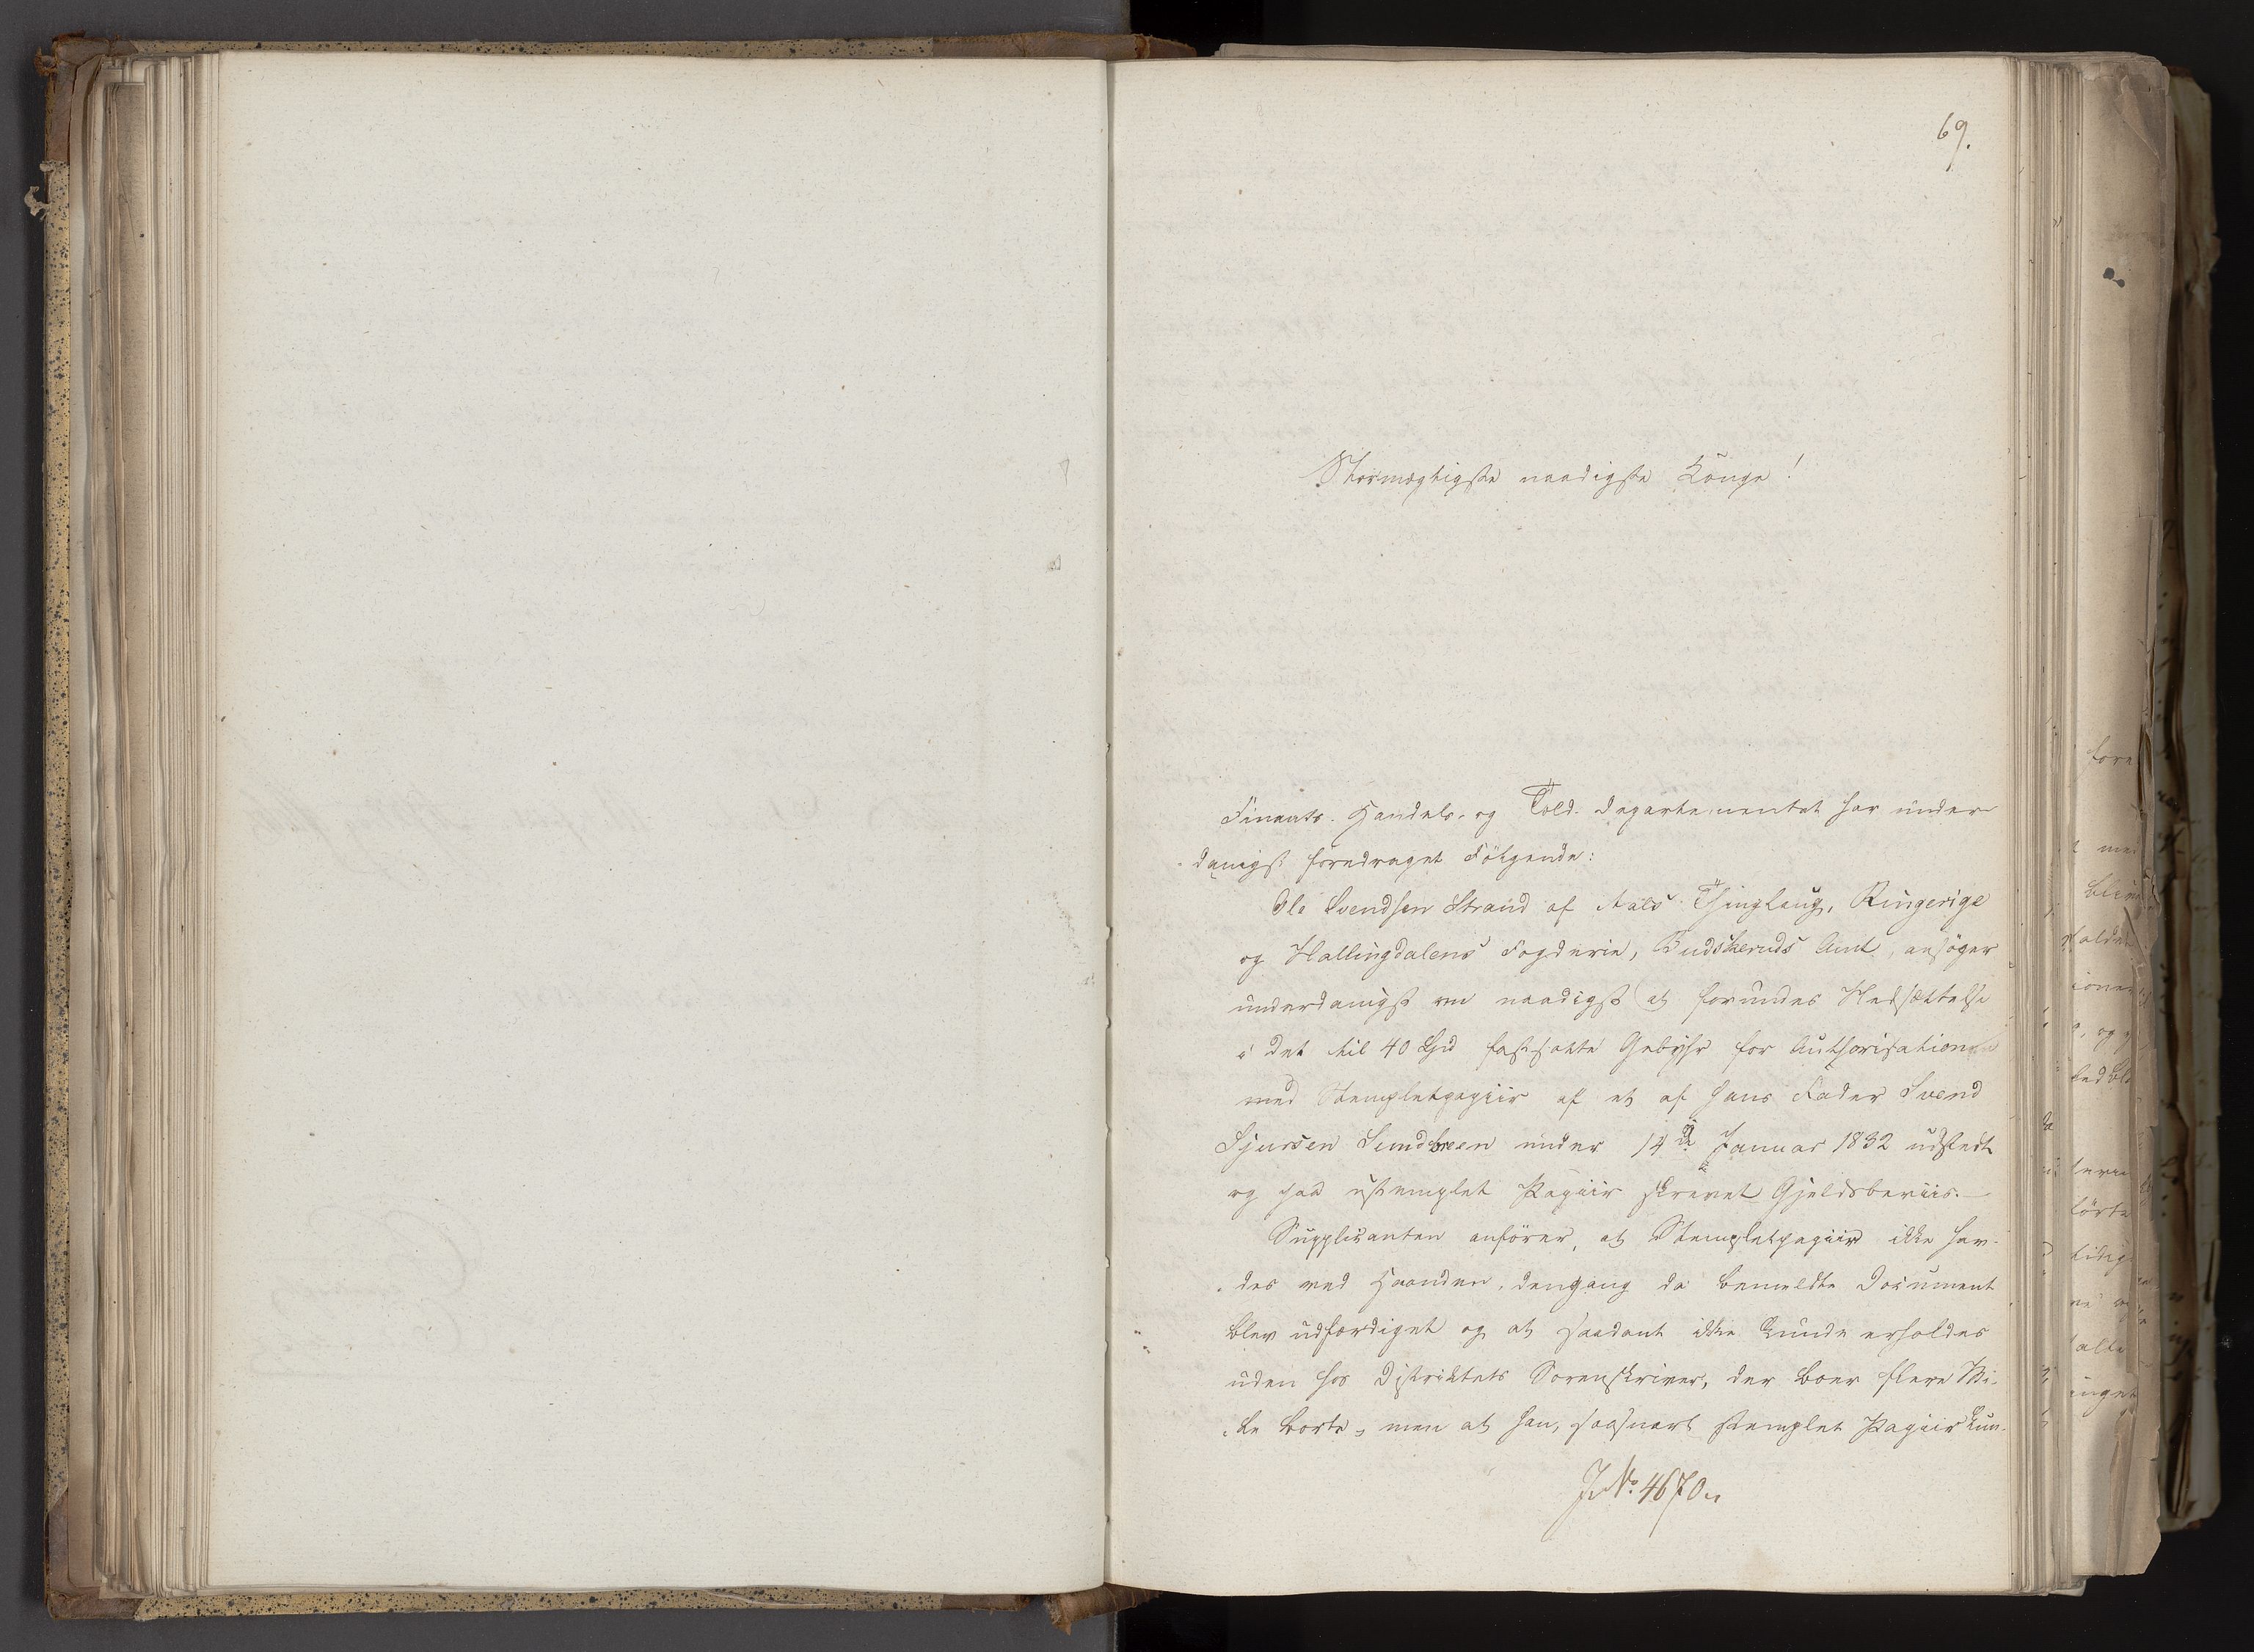 69.
Stormægtigste naadigste Konge!
Finants- Handels- og Told-Departementet har under-
danigst foredraget Følgende:
Ole Svendsen Strand af Aals Thinglaug, Ringerige
og Hallingdalens Fogderie, Budskeruds Amt, ansøger
underdanigst om naadigst at forundes Nedsættelse
i det til 40 Spd fastsatte Gebyhr for Authorisationen
med Stempletpapiir af et af hans Fader Svend
Sjursen Sundbreen under 14de Januar 1832 udstedt
og paa ustemplet Papiir skrevet Gjeldsbeviis.-
Supplicanten anfører, at Stempletpapiir ikke hav-
des ved Haanden, dengang da bemeldte Document
blev udfærdiget og at saadant ikke kunde erholdes
uden hos Distriktets Sorenskriver, der boer flere Mi-
le borte, men at han, saasnart stemplet Papiir kun-
J. No. 4670